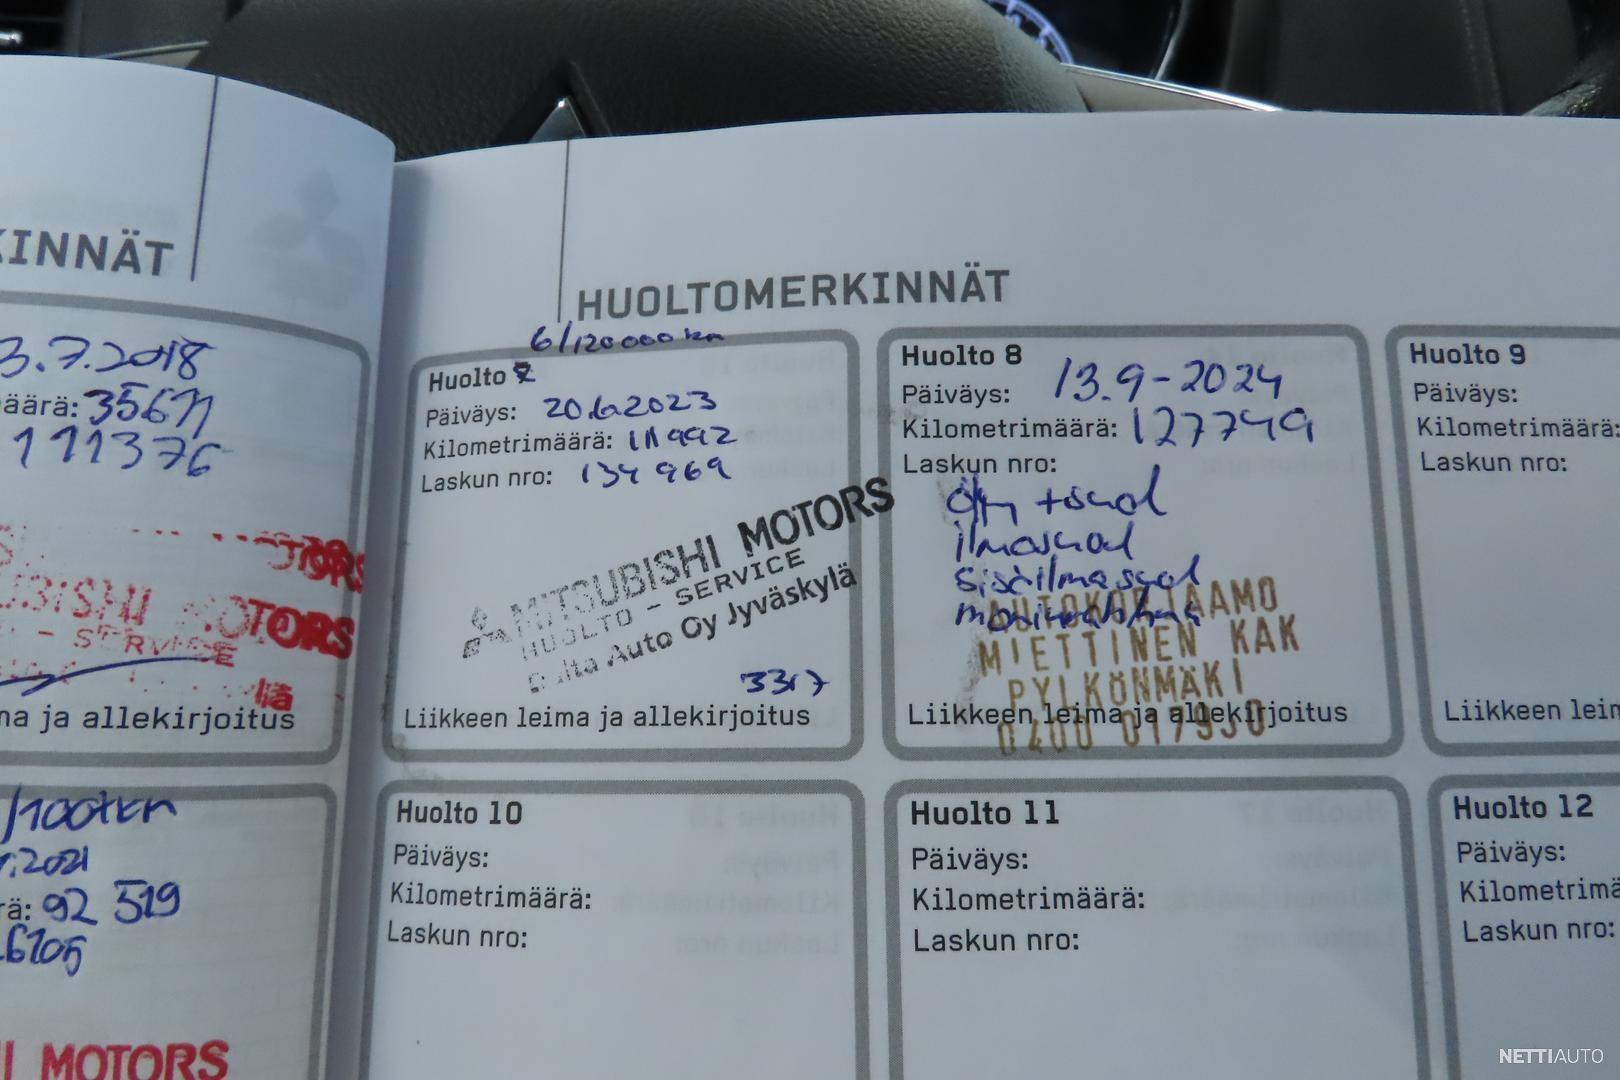 KINNÄT
3.7.2018
äärä: 35671
111376
TORS
UBISHI MOTORS
- SERVICE
na ja allekirjoitus
/100tkm
.2021
rä: 92 519
6705
I MOTORS
HUOLTOMERKINNÄT
6/120000km
Huolto 7
Päiväys: 20.6.2023
Kilometrimäärä: 111992
Laskun nro: 134969
MITSUBISHI MOTORS
HUOLTO - SERVICE
Delta Auto Oy Jyväskylä
3317
Liikkeen leima ja allekirjoitus
Huolto 8
Päiväys: 13.9-2024
Kilometrimäärä: 127749
Laskun nro:
öljy + suod
ilmasuod
sisäilmasuod
AUTOKORJAAMO
MIETTINEN KAK
PYLKÖNMÄKI
Liikkeen leima ja allekirjoitus
0400 017930
Huolto 9
Päiväys:
Kilometrimäärä:
Laskun nro:
Liikkeen leim
Huolto 10
Päiväys:
Kilometrimäärä:
Laskun nro:
Huolto 11
Päiväys:
Kilometrimäärä:
Laskun nro:
Huolto 12
Päiväys:
Kilometrimä
Laskun nro:
NETTIAUTO